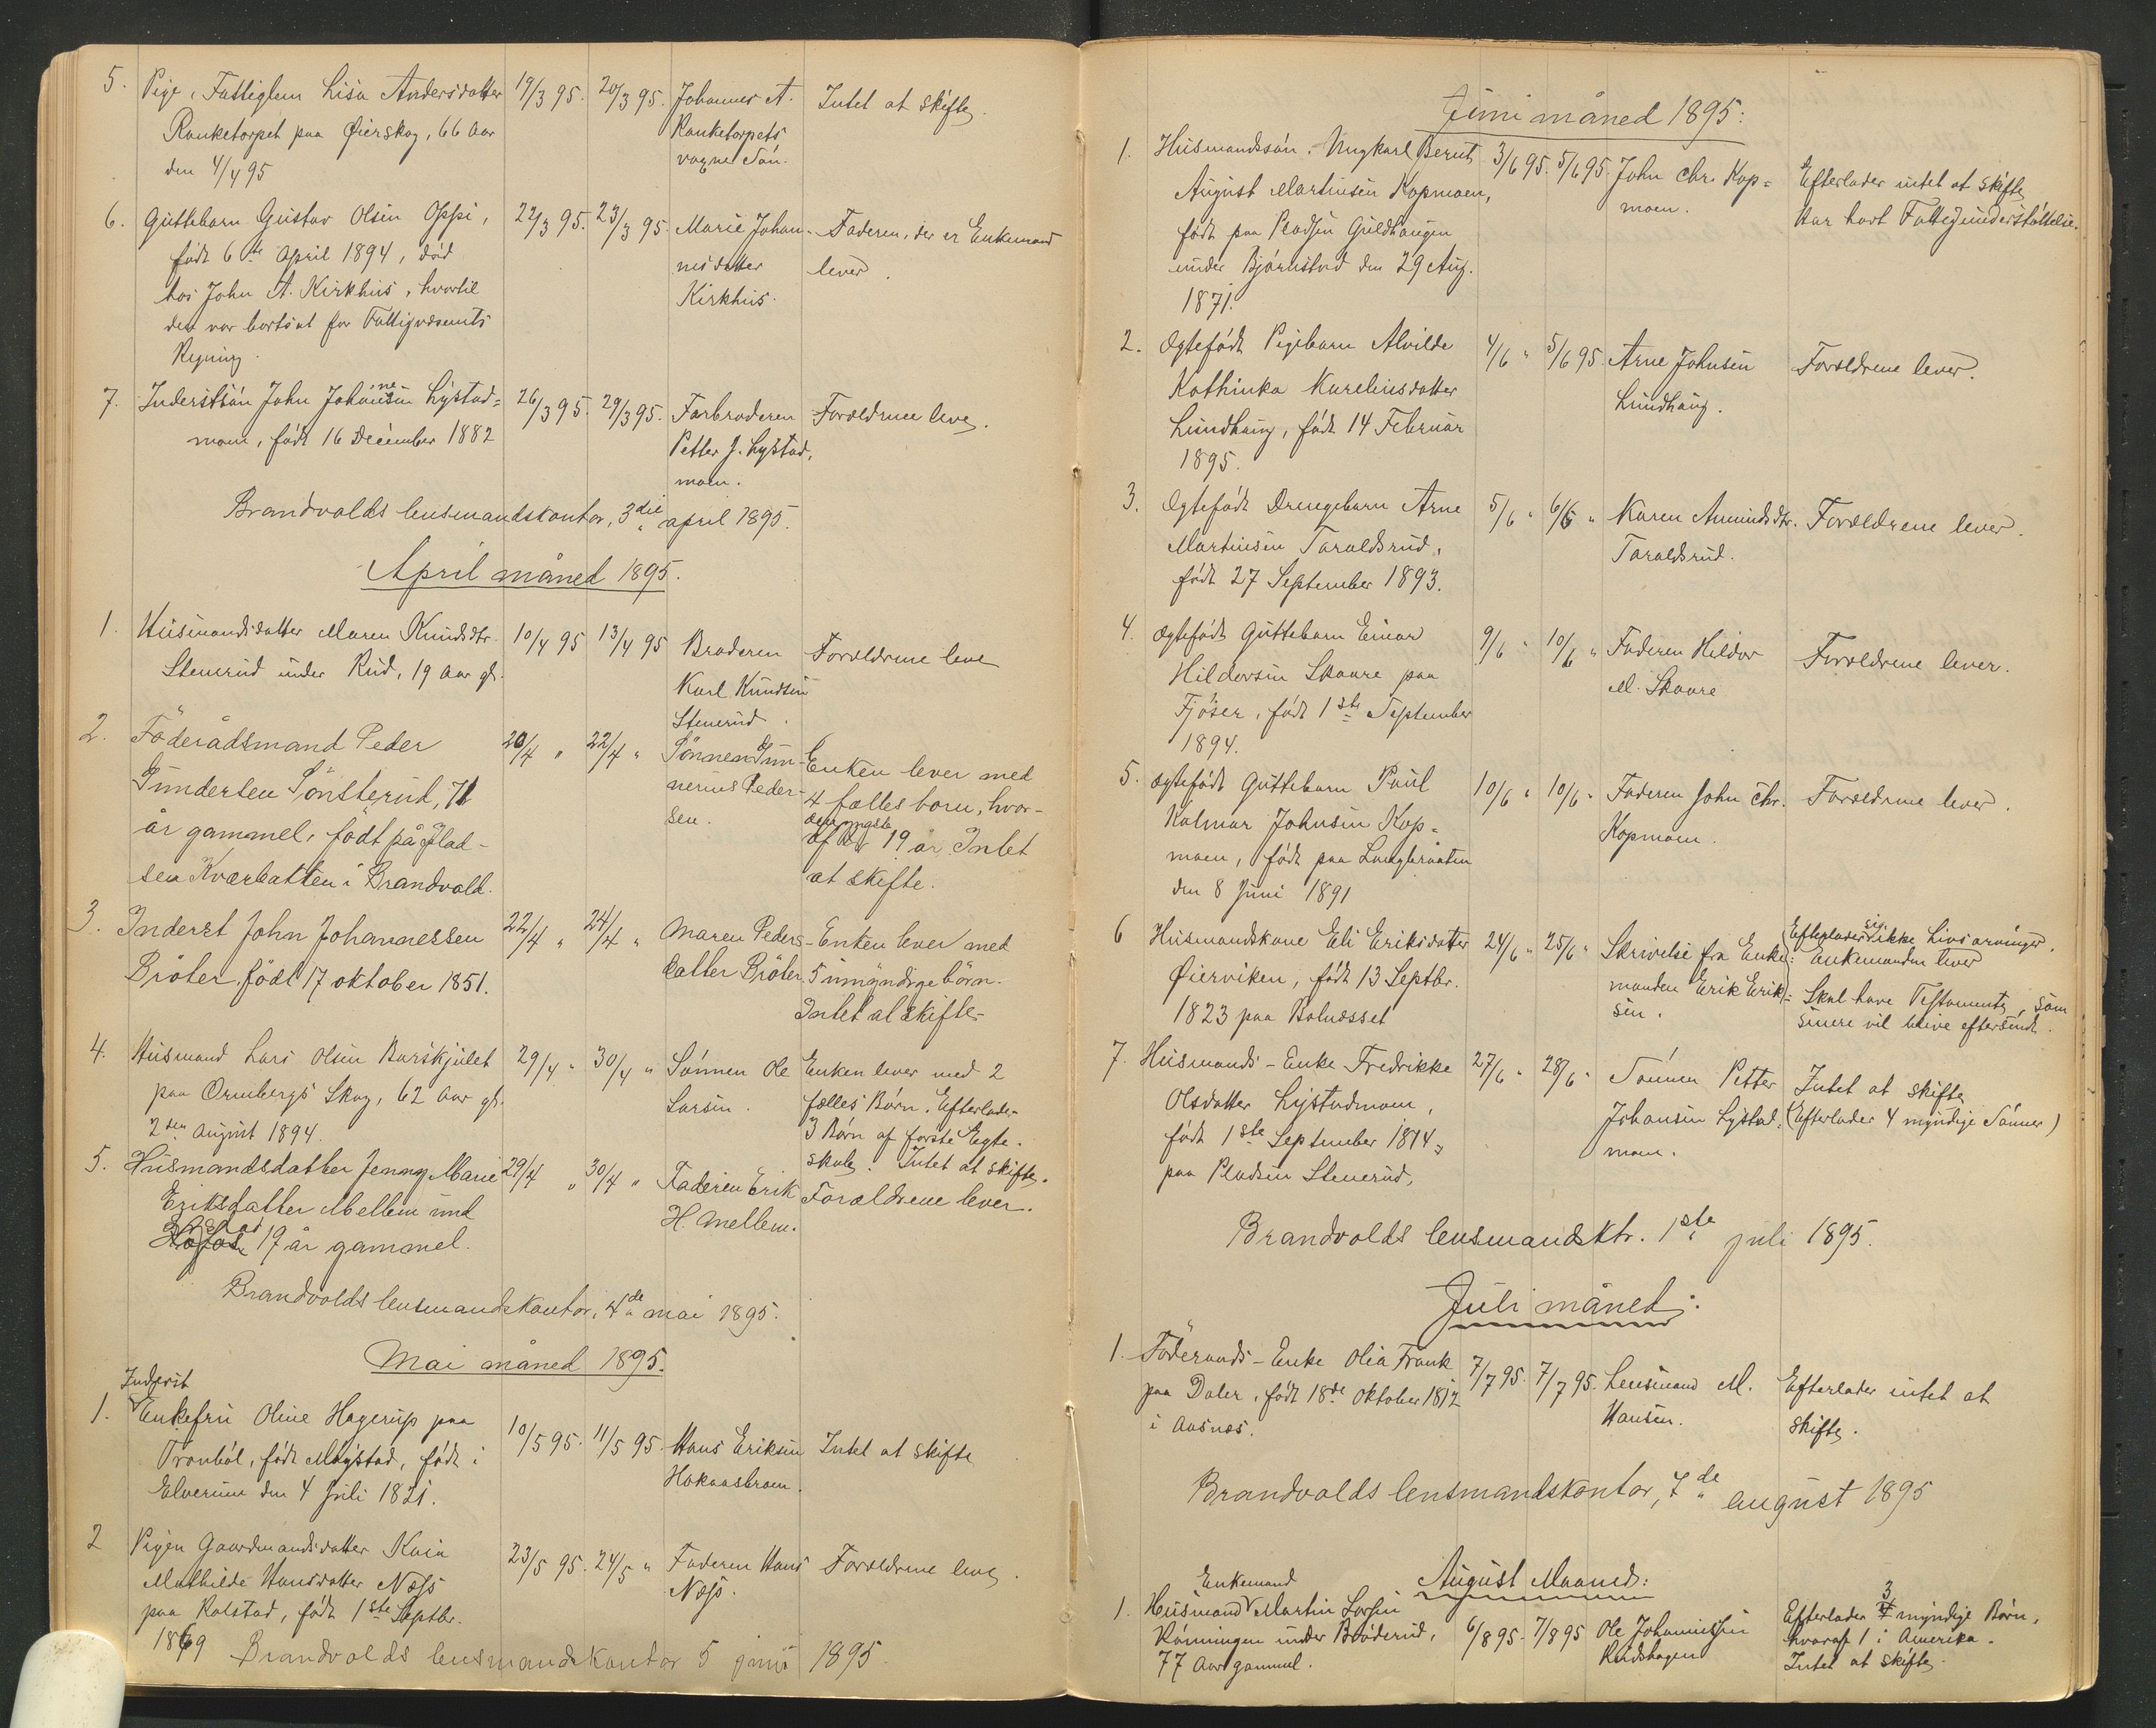 5. Pige, Fattiglem Lisa Andersdatter 19/3 95. 20/3 95. Johannes A. Intet at skifte.
Ranketorpet paa Øierskog, 66 Aar Ranketorpets
den 4/4 95 voxne Søn.
6. Guttebarn Gustav Olsen Oppi, 22/3 95. 23/3 95. Marie Johan- Faderen, der er Enkemand
født 6te April 1894, død nesdatter lever.
hos John A. Kirkhus, hvortil Kirkhus.
det var bortsat for Fattigvæsenets
Regning.
7. Inderstsøn John Johannesen Lystad- 26/3 95. 29/3 95. Farbroderen Forældrene leve.
moen, født 16 December 1882 Petter J. Lystad-
moen.
Brandvolds lensmandskontor, 3die april 1895.
April måned 1895.
1. Husmandsdatter Maren Knudsdtr. 10/4 95 13/4 95 Broderen Forældrene leve
Stenerud under Rud, 19 Aar gl. Karl Knudsen
Stenerud.
2. Föderådsmand Peder 20/4 " 22/4 " Sönnen Gun- Enken lever med
Gundersen Sönsterud, 71 nerius Peder- 4 fælles born, hvor-
år gammel, født på Plad- sen. af den yngste 19 år. Intet
sen Kværbatten i Brandvold. at skifte.
3. Inderst John Johannessen 22/4 " 24/4 " Maren Peders- Enken lever med
Bröter, født 17 oktober 1851. datter Bröter. 5 umyndige börn.
Intet at skifte.
4. Husmand Lars Olsen Barskjulet 29/4 " 30/4 " Sønnen Ole Enken lever med 2
paa Ormbergs Skog, 62 Aar gl. Larsen. fælles Børn. Efterlader
2den August 1894. 3 Børn af første Egte-
skab. Intet at skifte.
5. Husmandsdatter Jenny Marie 29/4 " 30/4 " Faderen Erik Forældrene lever.
Eriksdatter Mellem und H. Mellem.
19 år gammel.
Brandvolds lensmandskontor, 4de mai 1895.
Mai måned 1895.
Inderst
1. Enkefru Oline Hagerup paa 10/5 95. 11/5 95. Hans Eriksen Intet at skifte
Tronbøl, født Møystad, født i Hokaasbroen.
Elverum den 4 Juli 1821.
2 Pigen Gaardmandsdatter Kaia 23/5 95. 24/5 " Faderen Hans Forældrene leve.
Mathilde Hansdatter Næss Næss.
paa Kolstad, født 1ste Septbr.
1869 Brandvolds lensmandskontor 5 juni 1895.
Juni måned 1895:
1. Husmandssøn, Ungkarl Bernt 3/6 95. 5/6 95. John Chr. Kop- Efterlader intet at skifte
August Martinsen Kopmoen, moen. Har havt Fattigunderstøttelse.
født paa Pladsen Guldhaugen
under Bjørnstad den 29 Aug.
1871.
2. Ægtefødt Pigebarn Alvilde 4/6 " 5/6 95 Arne Johnsen Forældrene lever.
Kathinka Kareliusdatter Lundhaug.
Lundhaug, født 14 Februar
1895.
3. Ægtefødt Drengebarn Arne 5/6 " 6/6 " Karen Amundsdtr. Forældrene lever.
Martinsen Taraldsrud, Taraldsrud.
født 27 September 1893.
4. Ægtefødt Guttebarn Einar 9/6 " 10/6 " Faderen Hildor Forældrene lever.
Hildorsen Skaare paa M. Skaare
Fjøser, født 1ste September
1894.
5. Ægtefødt Guttebarn Paul 10/6 " 10/6 " Faderen John Chr. Forældrene lever.
Kalmar Johnsen Kop- Kopmoen.
moen, født paa Langbraaten
den 8 Juni 1891
6 Husmandskone Eli Eriksdatter 24/6 " 25/6 " Skrivelse fra Enke- Efterlader sig ikke Livsarvinger.
Øierviken, født 13 Septbr. manden Erik Erik- Enkemanden lever
1823 paa Bolnæsset sen. Skal have Testamente, som
senere vil blive eftersendt.
7. Husmands-Enke Fredrikke 27/6 " 28/6 " Sønnen Petter Intet at skifte
Olsdatter Lystadmoen, Johansen Lystad- (Efterlader 4 myndige Sønner)
født 1ste September 1814 moen.
paa Pladsen Stenerud,
Brandvolds lensmandsktr. 1ste juli 1895.
Juli måned:
1. Föderaads-Enke Olia Frank 7/7 95. 7/7 95. Lensmand M. Efterlader intet at
paa Daler, født 18de Oktober 1812 Hansen. skifte.
i Aasnæs.
Brandvolds lensmandskontor, 7de august 1895
August Maaned:
Enkemand
1. Husmand Martin Larsen 6/8 95. 7/8 95 Ole Johannessen Efterlader 3 myndige Børn,
Rønningen under Braaderud, Rudshagen hvoraf 1 i Amerika.
77 Aar gammel. Intet at skifte.